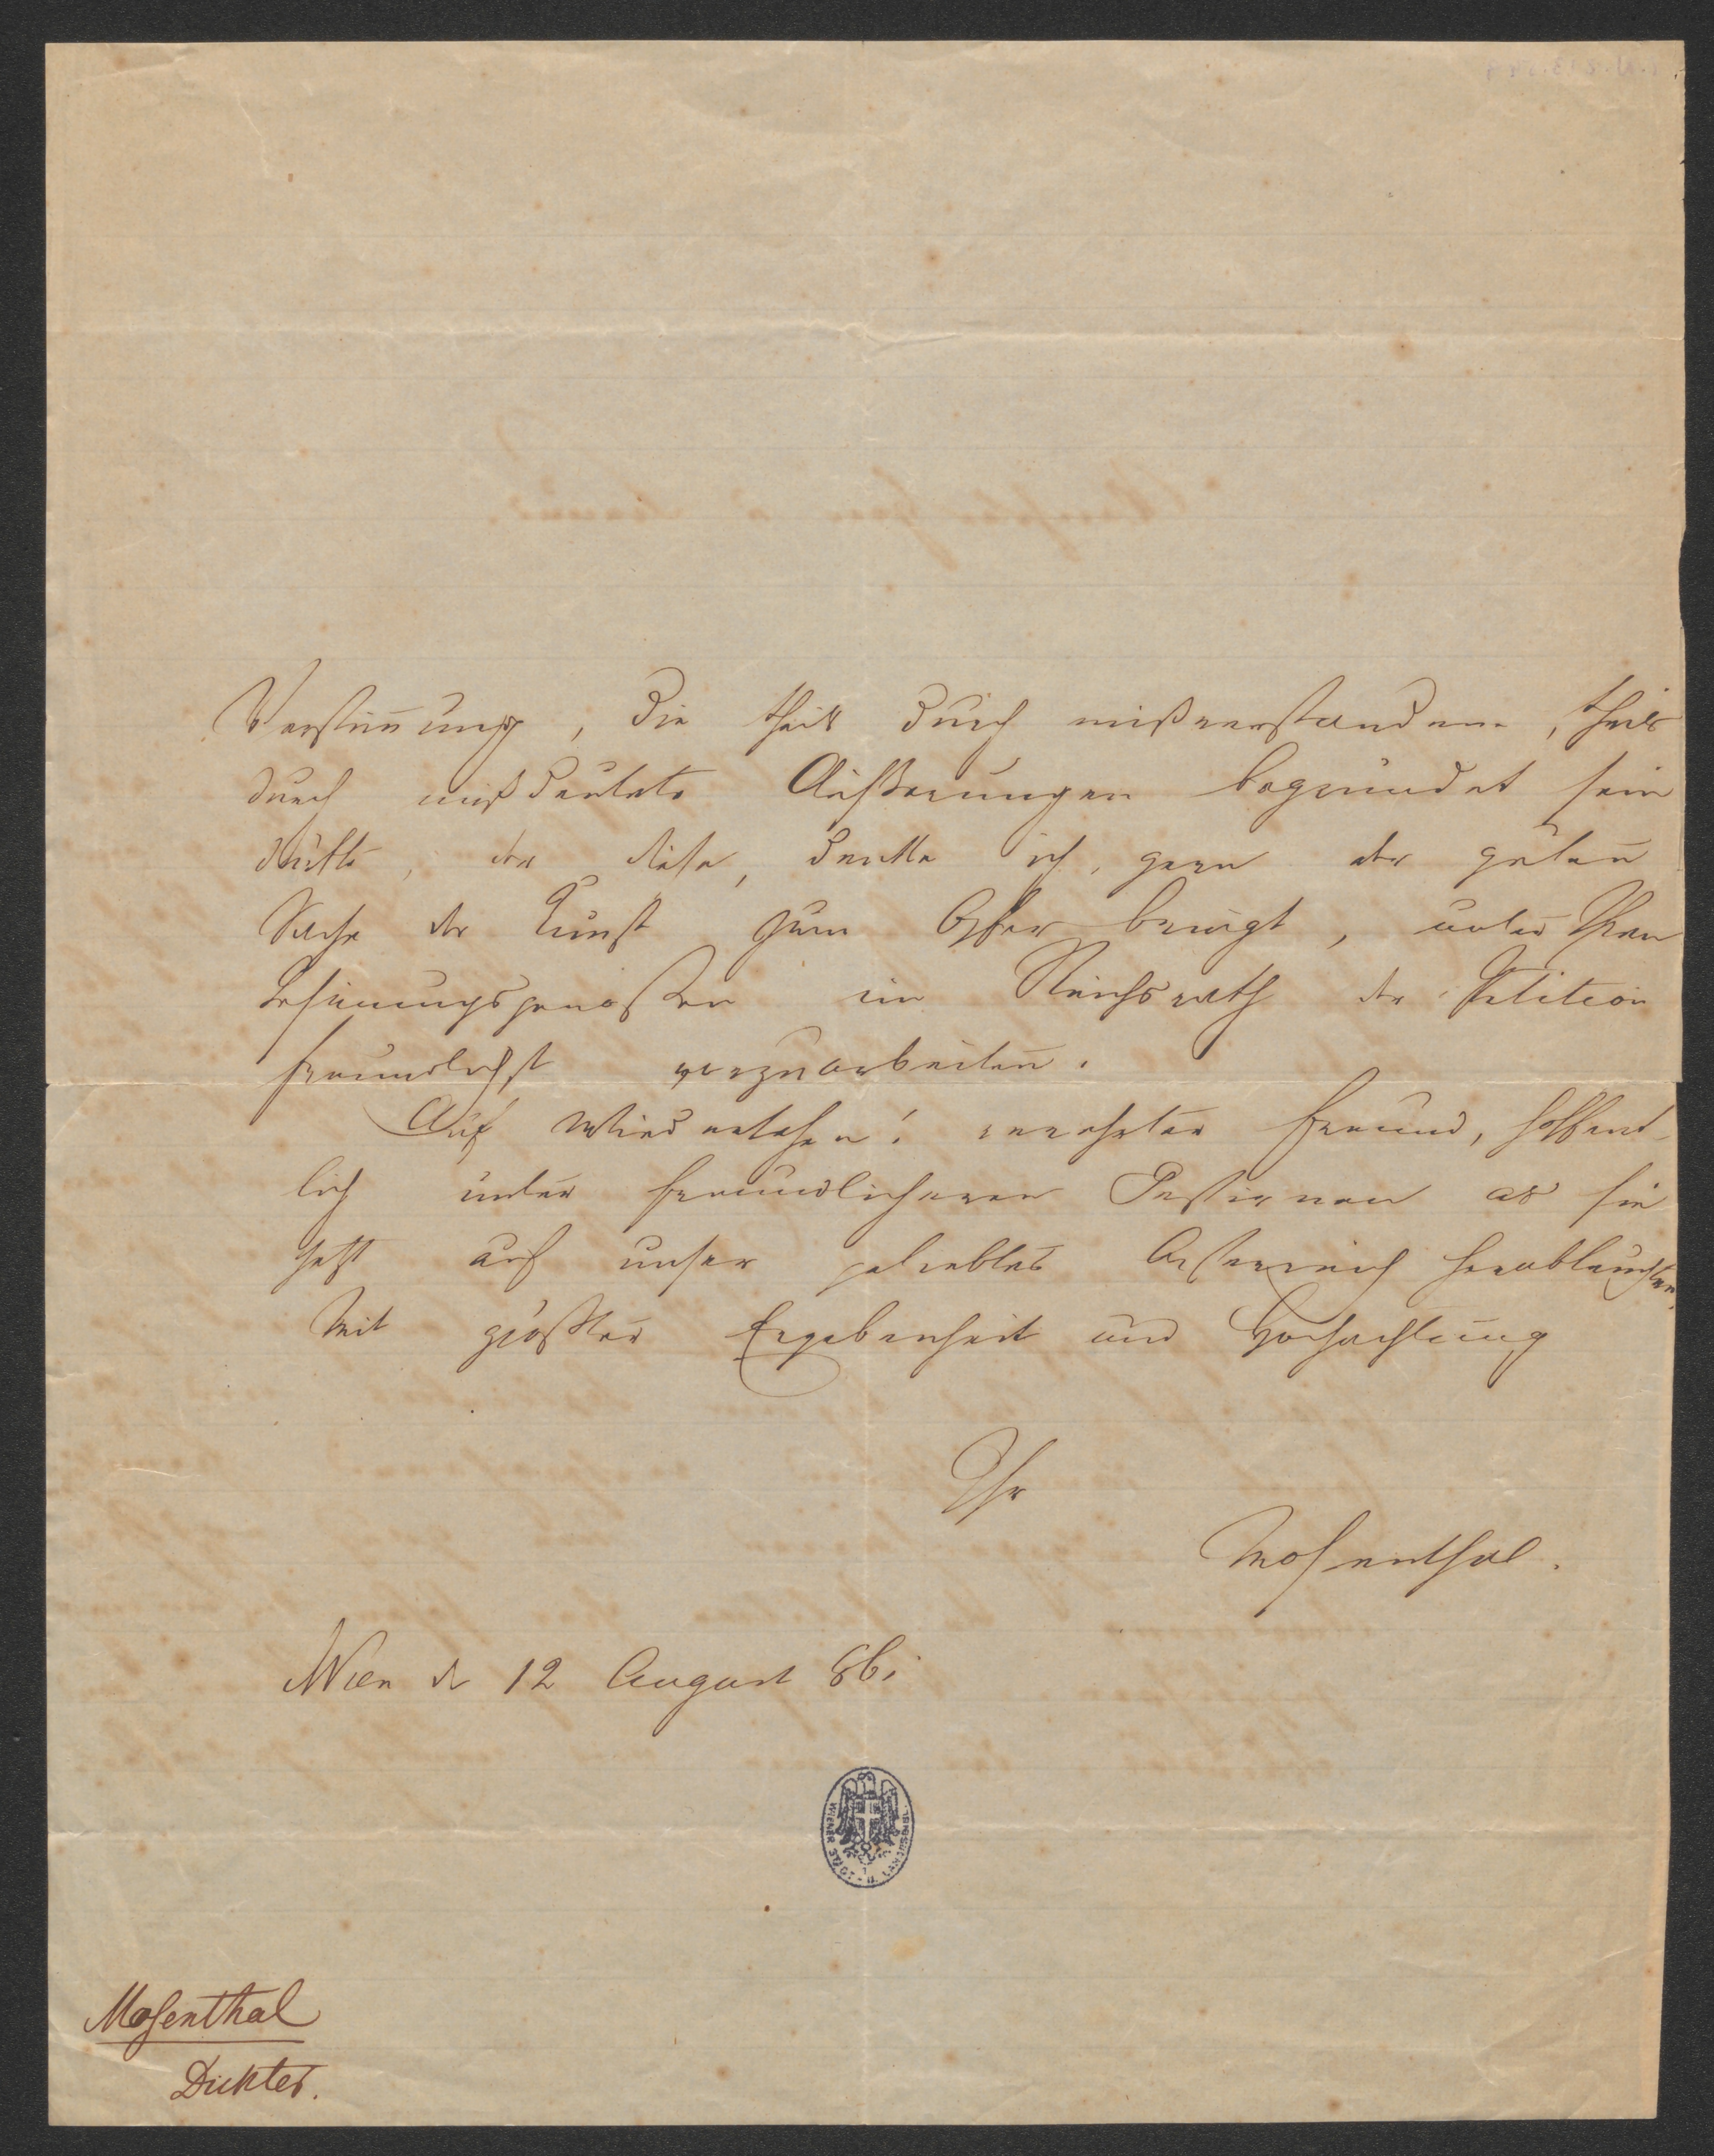 Verstim̄ung, die theils durch mißverstandene, theils
durch mißdeutete Äußerungen begründet sein
dürfte, der diese, denke ich, gern der guten
Sache der Kunst zum Opfer bringt, unter Ihren
Gesinnungsgenoßen im Reichsrath der Petition
freundlichst vorzuarbeiten.
Auf Wiedersehen! verehrter Freund, hoffent-
lich unter freundlicheren Gestirnen als sie
jetzt auf unser geliebtes Oesterreich herableuchten.
Mit größter Ergebenheit und Hochachtung
Ihr
Mosenthal.
Wien d 12 August 861
WIENER STADT- U. LANDESBIBL.
Mosenthal
Dichter.